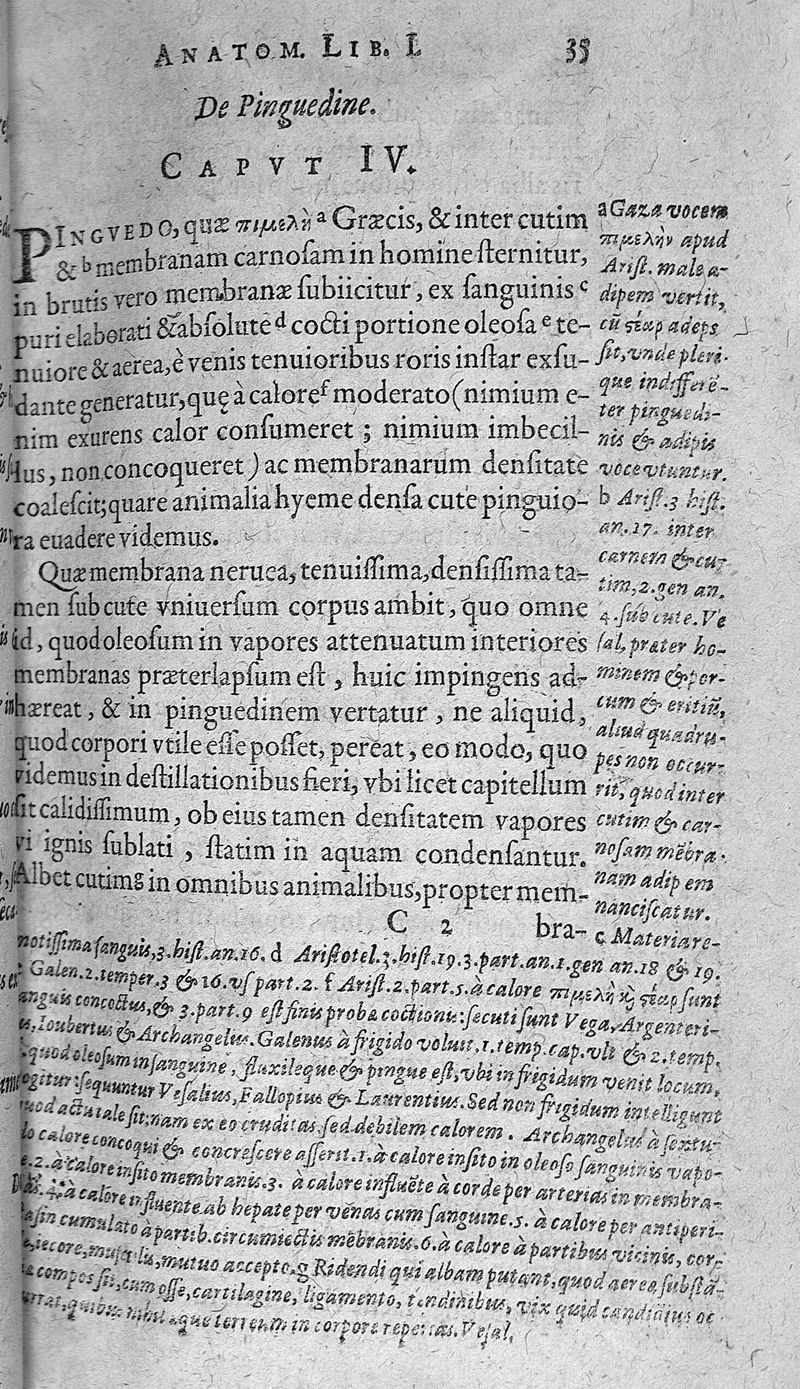 ANATOM. LIB. I.
35
De Pinguedine.
CAPVT IV.
PINGVEDO, quæ πιμελὴ a Græcis, & inter cutim
& b membranam carnosam in homine sternitur,
in brutis vero membranæ subiicitur, ex sanguinis c
puri elaborati & absolutè d cocti portione oleosa e te-
nuiore & aërea, è venis tenuioribus roris instar exsu-
dante generatur, quę à calore f moderato (nimium e-
nim exurens calor consumeret ; nimium imbecil-
lus, non concoqueret) ac membranarum densitate
coalescit; quare animalia hyeme densa cute pinguio-
ra euadere videmus.
Quæ membrana neruea, tenuissima, densissima ta-
men sub cute vniuersum corpus ambit, quo omne
id, quod oleosum in vapores attenuatum interiores
membranas præterlapsum est, huic impingens ad-
hæreat, & in pinguedinem vertatur, ne aliquid,
quod corpori vtile esse posset, pereat, eo modo, quo
videmus in destillationibus fieri, vbi licet capitellum
sit calidissimum, ob eius tamen densitatem vapores
vi ignis sublati, statim in aquam condensantur.
Albet cutim g in omnibus animalibus, propter mem-
C 2 bra-
a Gaza vocem
πιμελὴν apud
Arist. male a-
dipem vertit,
cũ ςέαρ adeps
sit, vnde pleri-
que indifferē-
ter pinguedi-
nis & adipis
voce vtuntur.
b Arist. 3 hist.
an. 17. inter
carnem & cu-
tim, 2. gen an.
4. sub cute. Ve
sal. præter ho-
minem & por-
cum & eritiũ,
aliud quadru-
pes non occur-
rit, quod inter
cutim & car-
nosam mēbra-
nam adipem
nanciscatur.
c Materia re-
notissima sanguis, 3. hist. an. 16. d Aristotel. 3. hist. 19. 3. part. an. 1. gen an. 18 & 19.
Galen. 2. temper. 3 & 16. vs part. 2. f Arist. 2. part. 5. à calore πιμελὴ ϗ ςέαρ sunt
anguis concoctus, & 3. part. 9 est finis probæ coctionis: secuti sunt Vega, Argenteri-
us, Ioubertus & Archangelus. Galenus à frigido voluit, 1. temp. cap. vlt & 2. temp.
quod oleosum in sanguine, fluxileque & pingue est, vbi in frigidum venit locum,
ogitur: sequuntur Vesalius, Fallopius & Laurentius. Sed non frigidum intelligunt
quod actu tale sit: nam ex eo cruditas, sed debilem calorem. Archangelus à sextu-
lo calore concoqui & concrescere asserit. 1. à calore insito in oleoso sanguinis vapo-
e. 2. à calore insito membranis. 3. à calore influēte à corde per arterias in membra-
as. 4. à calore influente ab hepate per venas cum sanguine. 5. à calore per antiperi-
asin cumulato à partib. circumiectis mēbranis. 6. à calore à partibus vicinis, cor-
e, iecore, musculis, mutuo accepto. g Ridendi qui albam putant, quod aerea substā-
ia compos sit, cum osse, cartilagine, ligamento, tendinibus, vix quid candidius oc
urrat, quibus nihil æque terreum in corpore reperias. Vesal.